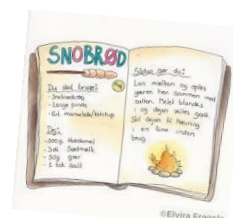 SNOBRØD
Du skal bruge:
- Snobrødsdej
- Lange pinde
- Evt. marmelade/ketchup
Dej:
- 500g Hvedemel
- 3dl Sødmælk
- 50g gær
- 1 tsk salt
Sådan gør du:
Lun mælken og opløs
gæren heri sammen med
saltet. Melet blandes
i og dejen æltes godt.
Stil dejen til hævning
i en time inden
brug.
©Elvira Fragola